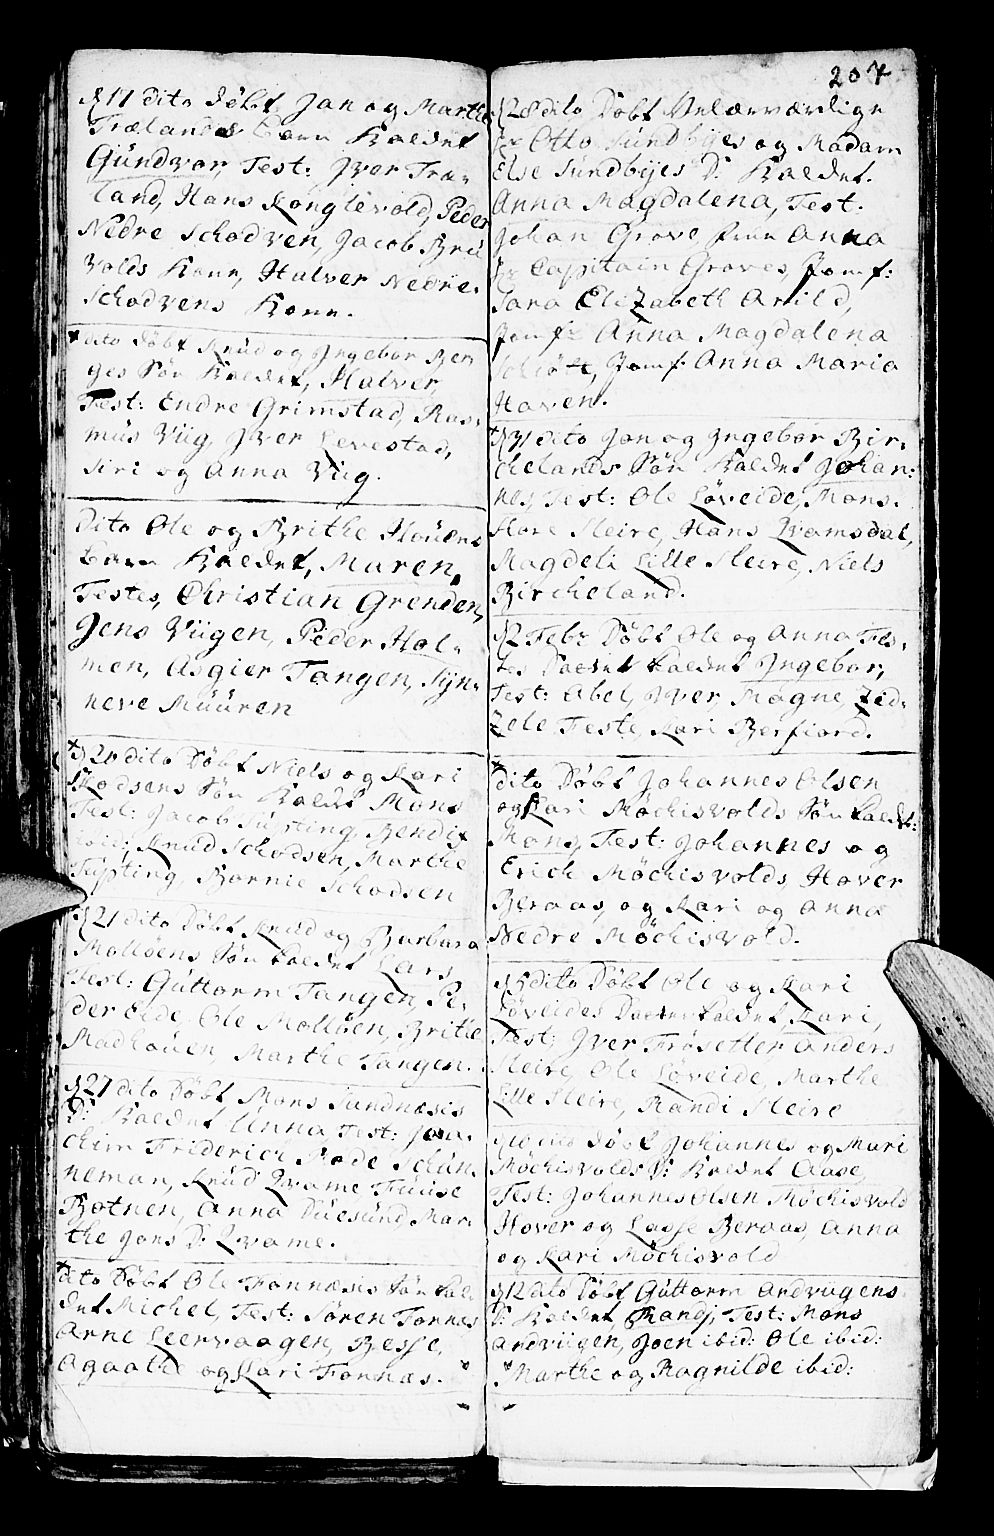 D 17 dito døbt Jon og Marthe
Trælands barn Kaldet
Gündvor, Test: Jver Træ-
land, Hans Konglevold, Peder
Nedre Schodven, Jacob Brü
volds Kone, Halver Nedre
Schodvens Kone.
dito døbt Knüd og Ingebor Ber
ges Søn Kaldet, Halver,
Test: Endre Grimstad, Ras-
müs Viig, Jver Levestad,
Siri og Anna Viig.
Dito Ole og Brithe Hoüens
barn Kaldet, Maren,
Testes, Christian Grenden,
Jens Viigen, Peder Hol-
men, Asgier Tangen, Syn-
neve Müüren
D 20 dito Døbt Niels og Kari
Skodsens Søn Kaldet Mons
Test: Jacob Tüfting, Bendix
ibid: Knüd Schodsen, Marthe
Tüfting, Barnie Schodsen
D 21 dito Døbt Knüd og Barbara
Molløens Søn kaldet Lars,
Test: Güttorm Tangen, Pe-
der Eide, Ole Molløen, Brithe
Madhoüen, Marthe Tangen.
D 27 dito Døbt Mons Sündnæsis
D: Kaldet Anna, Test: Joa-
chim Friderich Rode Schün
neman, Knüd Qvame Füüse
Botnen, Anna Düesünd, Mar-
the Jons D: Qvame.
dito Døbt Ole Fonnæsis Søn kal-
det Michel, Test: Søren Fonnes
Arne Leervaagen, Besse,
Agaathe og Kari Fonnæs.
207
D 28 dito Døbt Velærværdige
Hr Otto Sündbyes og Madam
Else Sündbyes D: Kaldet.
Anna Magdalena, Test.
Johan Grove frue Anna
Hr Capitain Groves, Jomf:
Sara Elizabeth Arild,
Jomfr Anna Magdalena
Schiøtt, Jomf: Anna Maria
Haven.
D 31 dito Jon og Ingebor Bir-
chelands Søn Kaldet Johan-
nes, Test: Ole Løveide, Mons
Store Sleire, Hans Qvamsdal,
Magdeli Lille Sleire, Niels
Bircheland.
D 2 Febr Døbt Ole og Anna Tes-
tes Datter kaldet Ingebor;
Test: Abel, Jver, Magne, Zid-
zele Teste, Kari Berfiord.
dito Døbt Johannes Olsen
og Kari Møchisvolds Søn kaldet:
Mons, Test: Johannes og
Erich Møchisvolds, Hover
Beraas, og Kari og Anna
Nedre Møchisvold.
D 5 dito Døbt Ole og Kari
Løveides Datter kaldet Kari,
Test: Jver Frøsetter Anders
Sleire, Ole Løveide, Marthe
Lille Sleire, Randi Sleire
dito døbt Johannes og Mari
Møchisvolds D: Kaldet Aase,
Test: Johannes Olsen Møchisvold
Hover og Lasse Beraas, Anna
og Kari Møchisvold
D 12 dito Døbt Güttorm Andviigens
D: Kaldet, Randj, Test: Mons
Andviigen, Joen ibid: Ole ibid:
Marthe og Ragnilde ibid: